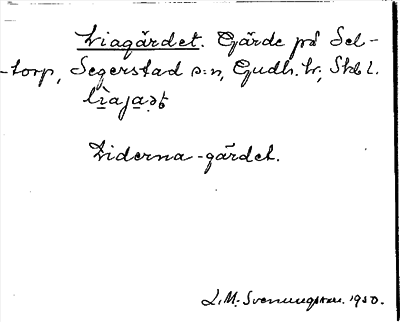 Liagärdet. Gärde på Sel-
-torp, Segerstad s:n, Gudh. hr; Skbl.
Liderna-gärdet.
L. M. Svenungsson. 1930.